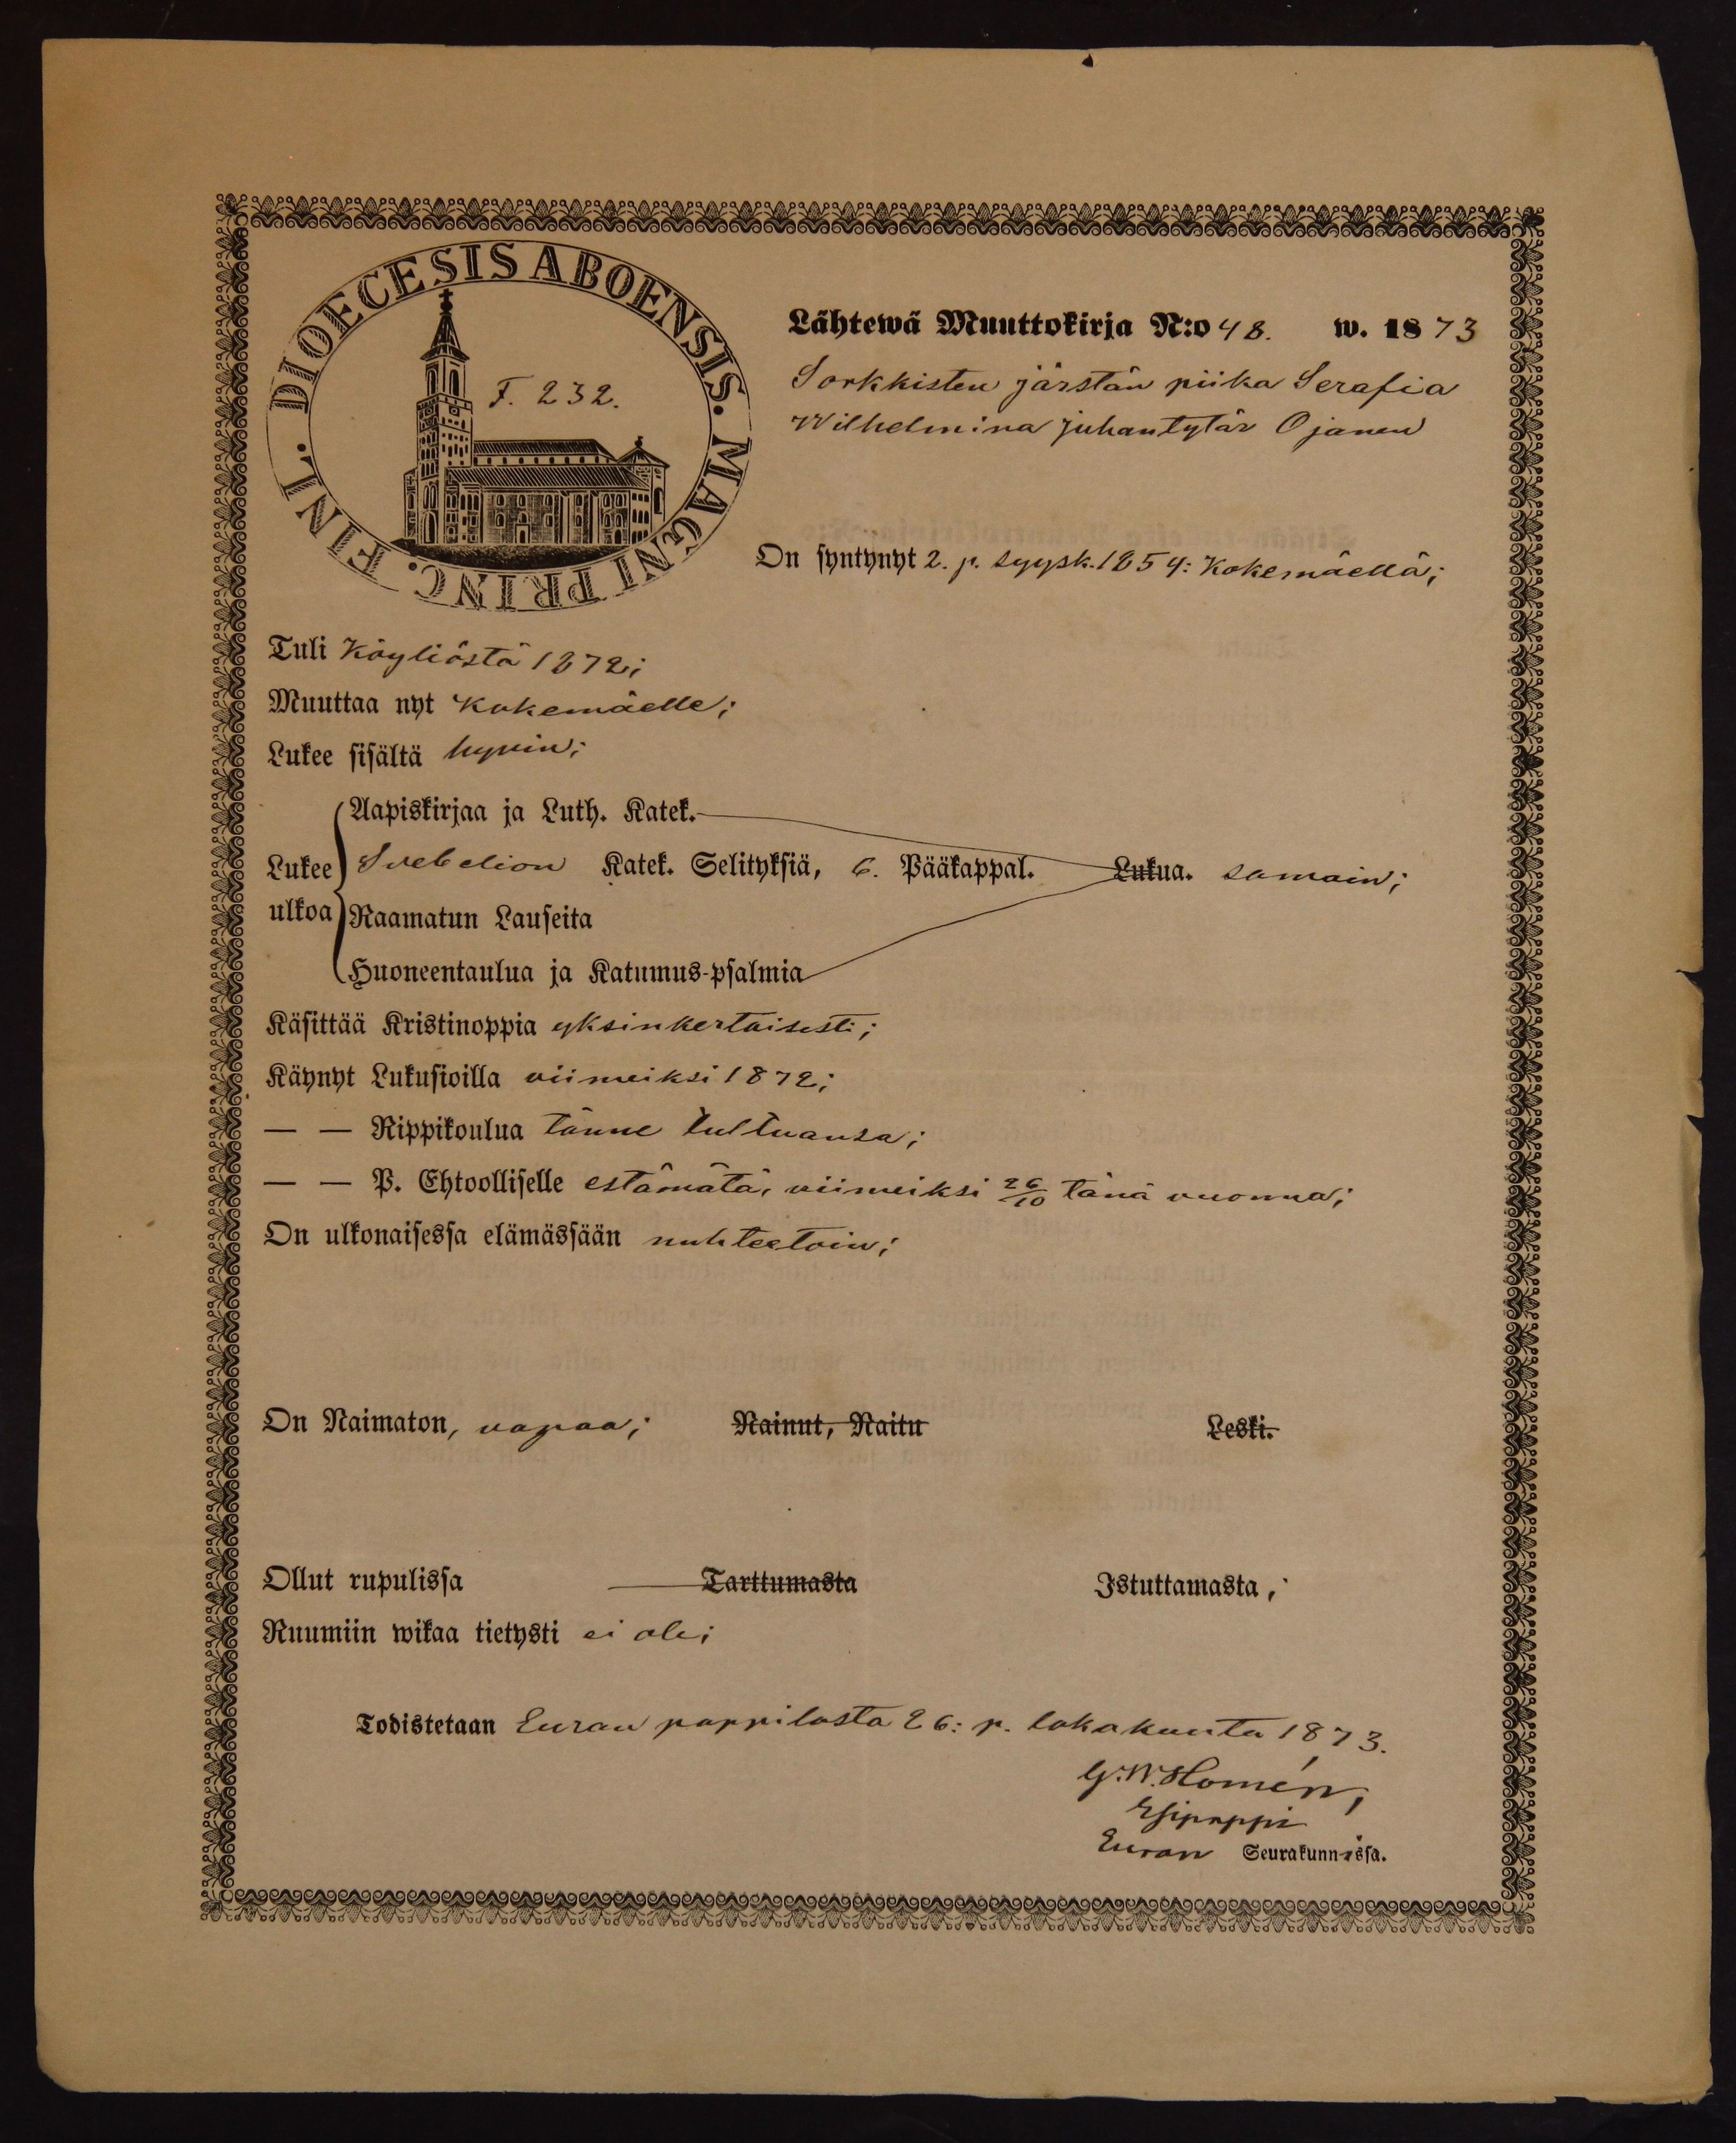 DIOECESIS ABOENSIS. MAGNI PRINC. FINL.
F. 232.
Lähtewä Muuttokirja N:o 48. w. 1873
Sorkkisten järstän piika Serafia
Wilhelmina Juhantytär Ojanen
On syntynyt 2. p. syysk. 1854: Kokemäellä;
Tuli Köyliöstä 1872;
Muuttaa nyt Kokemäelle;
Lukee sisältä hyvin;
Aapiskirjaa ja Luth. Katek.
Lukee ulkoa Svebelion Katek. Selityksiä, 6. Pääkappal. Lukua. samoin;
Raamatun Lauseita
Huoneentaulua ja Katumus-psalmia
Käsittää Kristinoppia yksinkertaisesti;
Käynyt Lukusioilla viimeiksi 1872;
— — Rippikoulua tänne tultuansa;
— — P. Ehtoolliselle estämätä, viimeiksi 26/10 tänä vuonna;
On ulkonaisessa elämässään nuhteetoin;
On Naimaton, vapaa; Nainut, Naitu Leski.
Ollut rupulissa Tarttumasta Istuttamasta;
Ruumiin wikaa tietysti ei ole;
Todistetaan Euran pappilasta 26: p. lokakuuta 1873.
G. W. Homén,
Esipappi
Euran Seurakunnissa.